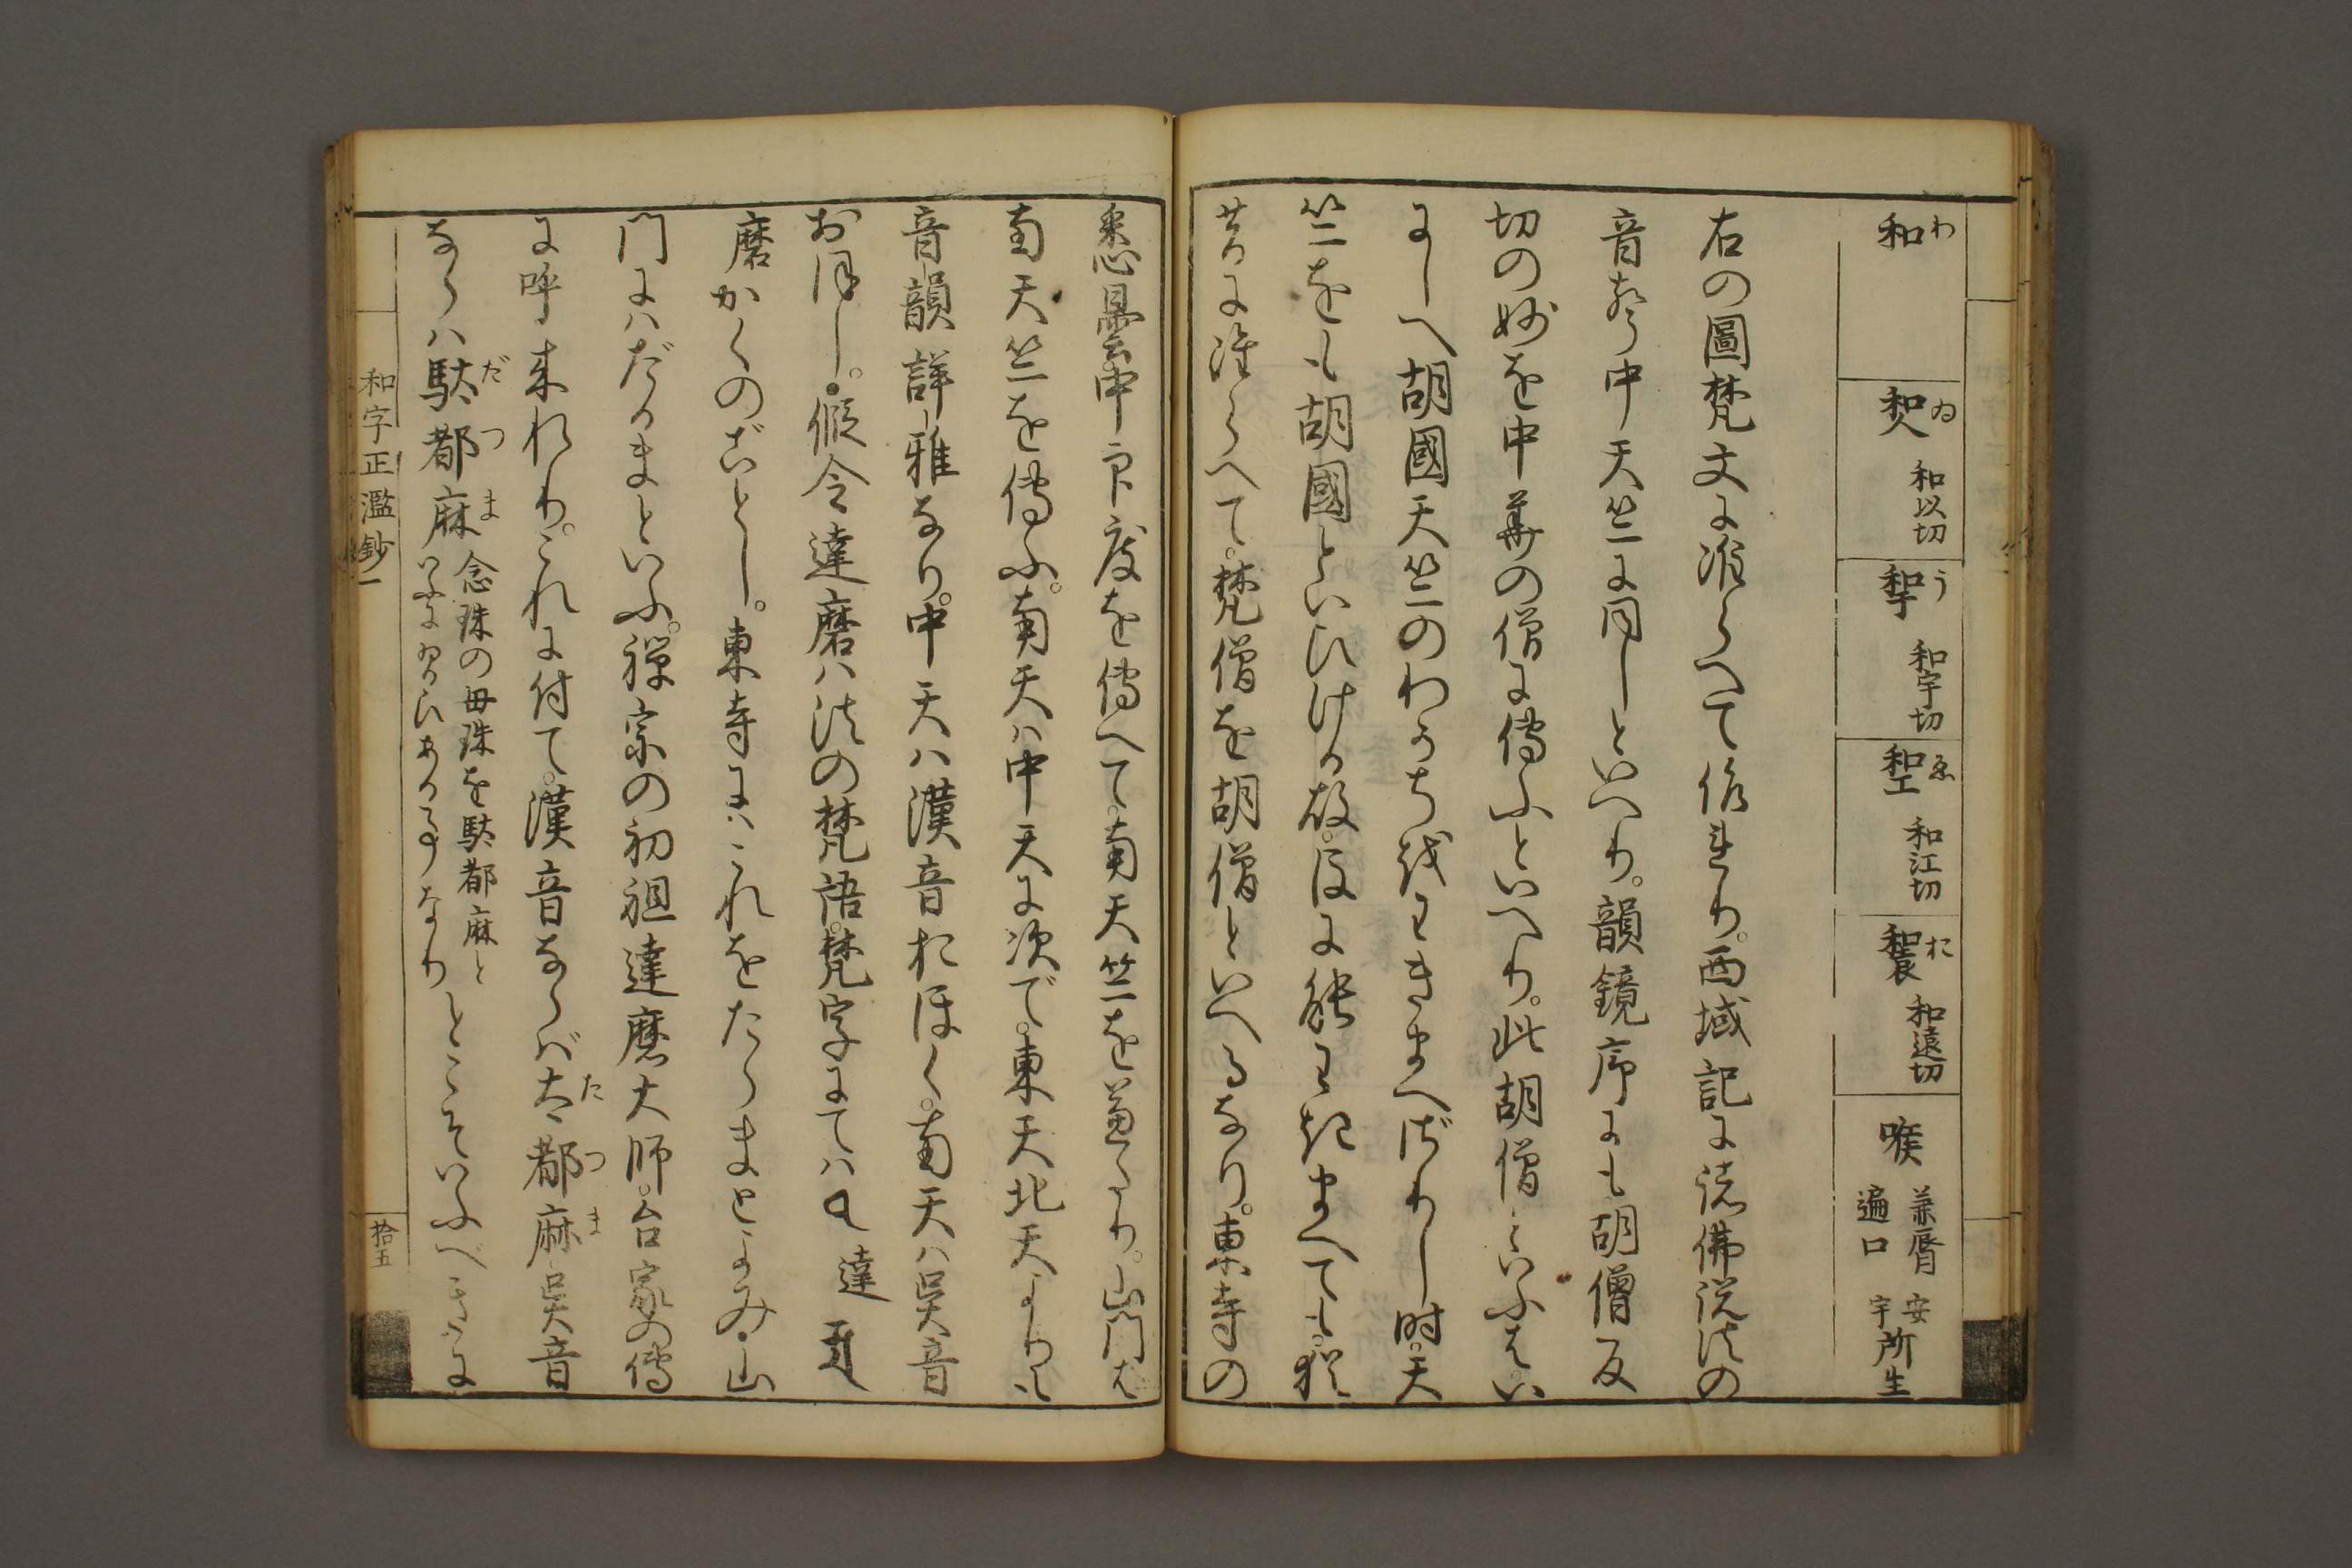 和 わ
𱍐 ゐ 和以切
和宇 う 和宇切
和江 ゑ 和江切
和遠 お 和遠切
喉 兼脣 遍口 安宇所生
右の圖梵文に准らへて作れり。西域記に諸佛説法の
音聲中天竺に同しといへり。韻鏡序にも胡僧反
切の妙を中華の僧に傳ふといへり。此胡僧といふはい
にしへ胡國天竺のわかち哉わきまへざりし時。天
竺をも胡國といひける故。後に能わきまへても。猶
昔に准らへて。梵僧を胡僧といへるなり。東寺の
悉曇中印度を傳へて。南天竺を兼たり。山門は
南天竺を傳ふ。南天ハ中天に次で。東天北天よりも
音韻詳雅なり。中天ハ漢音おほく。南天ハ呉音
おほし。假令達磨ハ法の梵語。梵字にてハ
達
磨かくのごとし。東寺にハこれをたらまとよみ。山
門にハだるまといふ。禪宗の初祖達磨大師。台家の傳
に呼来れり。これに付て。漢音ならバ太都麻呉音
たつま
ならハ駄都麻 念珠の母珠を駄都麻と
いふに習ひある事なり とこそいふべきに
だつま
和字正濫鈔一
拾五